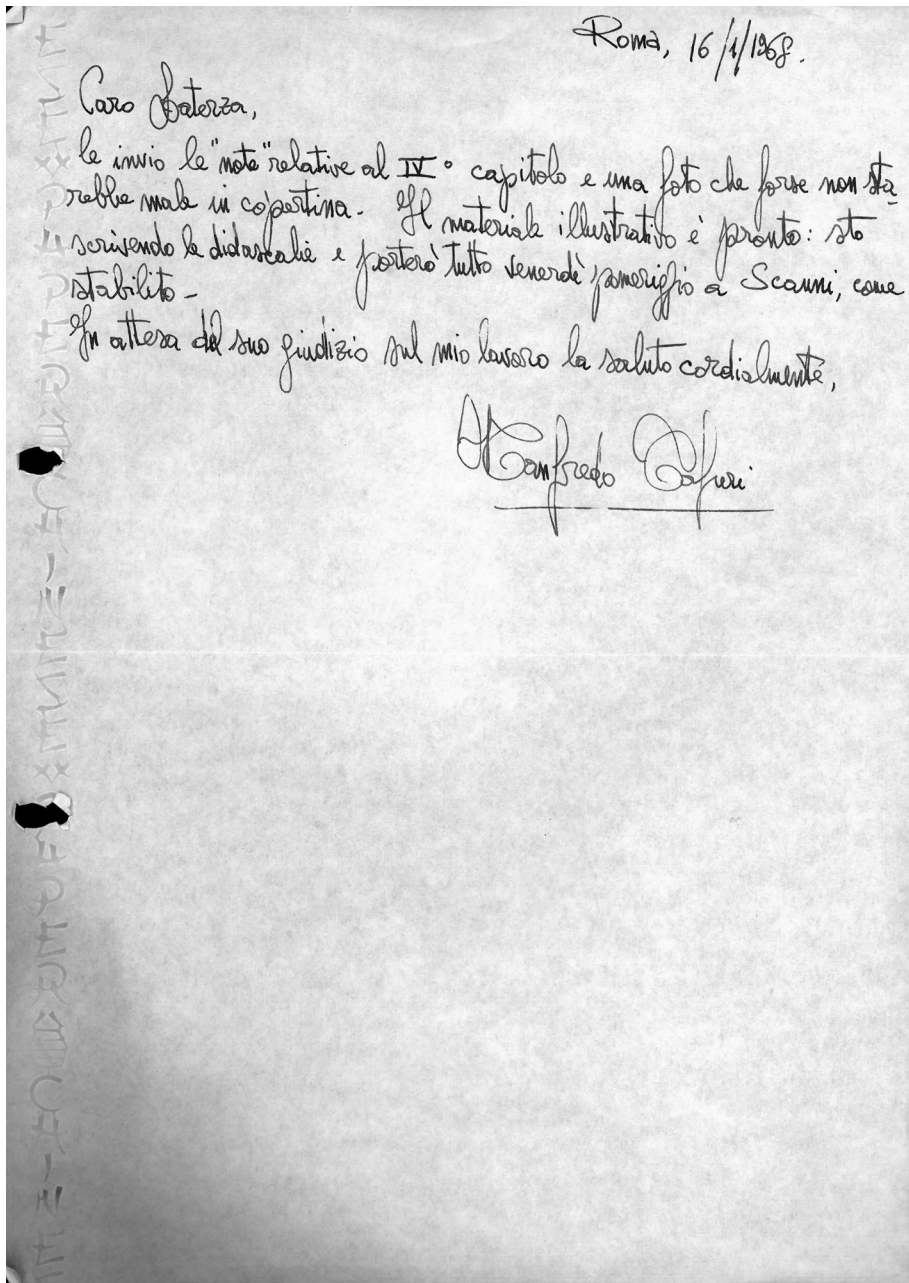 Roma, 16/1/1968.
Caro Laterza,
le invio le "note" relative al IV° capitolo e una foto che forse non sta-
rebbe male in copertina. Il materiale illustrativo è pronto: sto
scrivendo le didascalie e porterò tutto venerdì pomeriggio a Scanni, come
stabilito -
In attesa del suo giudizio sul mio lavoro la saluto cordialmente,
Manfredo Tafuri